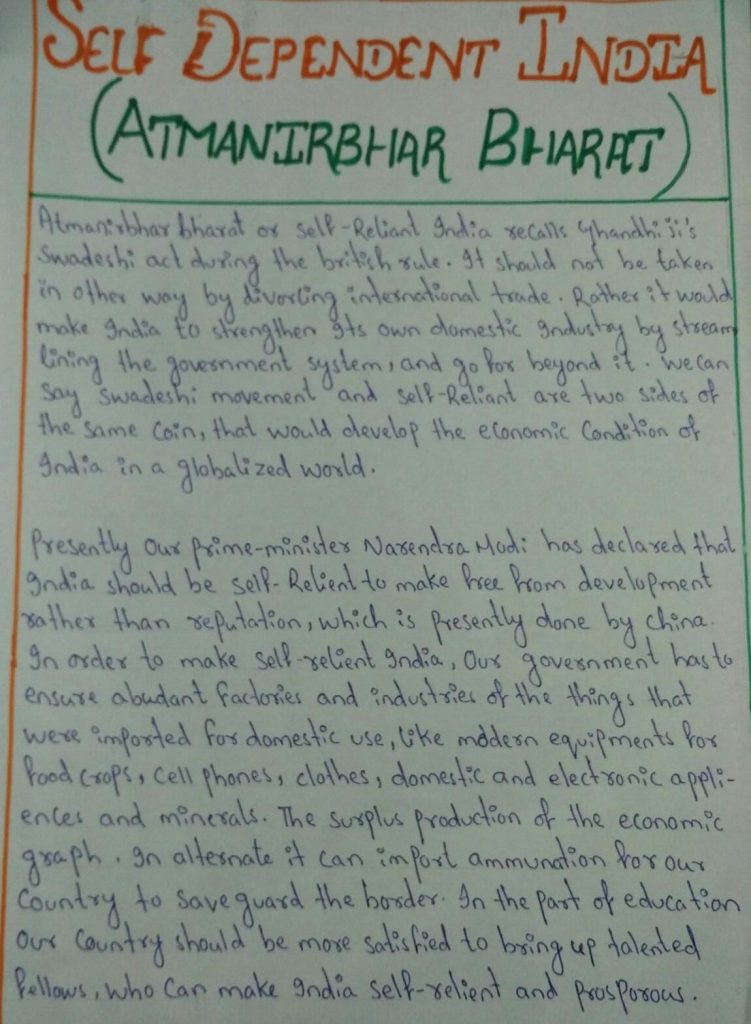 SELF DEPENDENT INDIA
(ATMANIRBHAR BHARAT)
Atmanirbhar bharat or self-Reliant India recalls Ghandhi Ji's
Swadeshi act during the british rule. It should not be taken
in other way by divorcing international trade. Rather it would
make India to strengthen its own domestic industry by stream
lining the government system, and go for beyond it. We can
say swadeshi movement and self-Reliant are two sides of
the same coin, that would develop the economic condition of
India in a globalized world.
Presently our prime-minister Narendra Modi has declared that
India should be self-Relient to make free from development
rather than reputation, which is presently done by china.
In order to make self-relient India, our government has to
ensure abudant factories and industries of the things that
were imported for domestic use, like modern equipments for
food crops, cell phones, clothes, domestic and electronic appli-
ences and minerals. The surplus production of the economic
graph. In alternate it can import ammunation for our
country to save guard the border. In the part of education
our country should be more satisfied to bring up talented
fellows, who can make India self-relient and prosporous.